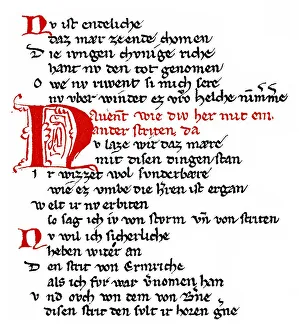 Nv ist endeliche
daz mær ze ende chomen
Die ivngen chvnige riche
hant nv den tot genomen
Owe nv riwent si mich sere
nv vber windet ez vro helche nimme
Auent wie div her mit ein
ander striten, da
Nv laze wir daz mære
mit disen dingen stan
Ir wizzet wol svnderbære
wie ez vmbe die ist ergan
Welt ir nv erbiten
so sag ich iv von stvrm vn̄ von striten
Nv wil ich sicherliche
heben witer an
Den strit von Ermriche
als ich fvr war v'nomen han
vnd ovch von dem von B'ne
disen strit den svlt ir horen g'ne